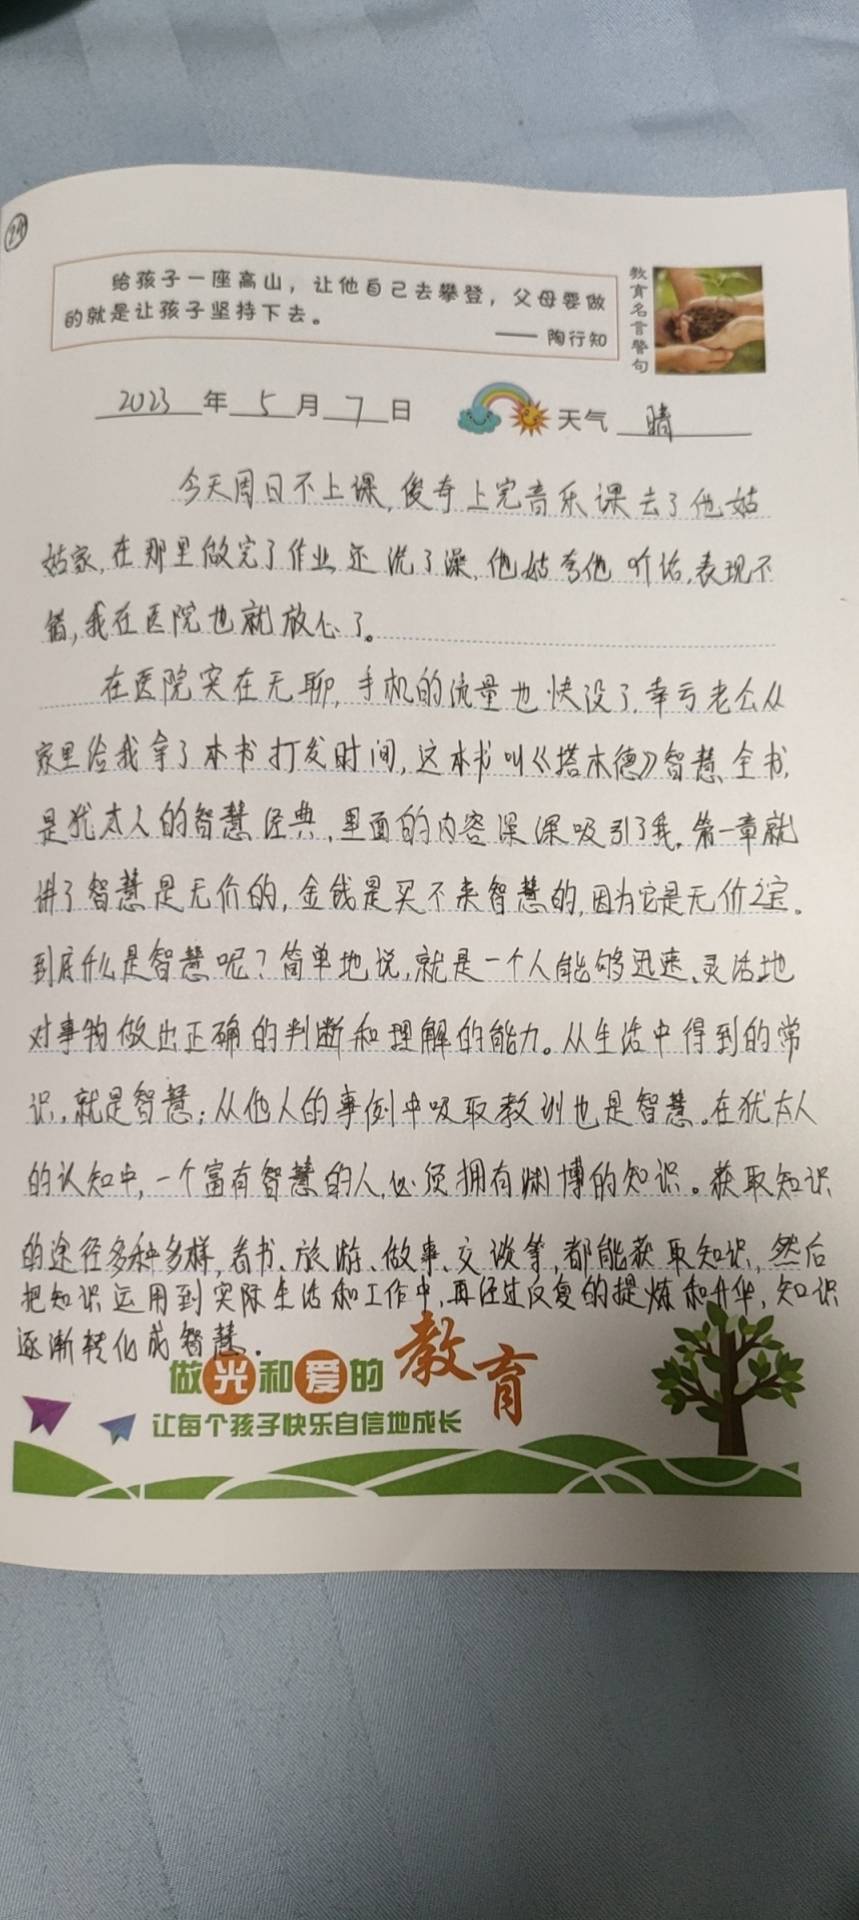 24
给孩子一座高山，让他自己去攀登，父母要做
的就是让孩子坚持下去。
—— 陶行知
教育名言警句
2023年5月7日 天气 晴
今天周日不上课,俊奇上完音乐课去了他姑
姑家,在那里做完了作业,还洗了澡,他姑夸他听话,表现不
错,我在医院也就放心了。
在医院实在无聊,手机的流量也快没了,幸亏老公从
家里给我拿了本书打发时间,这本书叫《塔木德》智慧全书,
是犹太人的智慧经典,里面的内容深深吸引了我。第一章就
讲了智慧是无价的,金钱是买不来智慧的,因为它是无价之宝。
到底什么是智慧呢?简单地说,就是一个人能够迅速、灵活地
对事物做出正确的判断和理解的能力。从生活中得到的常
识,就是智慧;从他人的事例中吸取教训也是智慧。在犹太人
的认知中,一个富有智慧的人,必须拥有渊博的知识。获取知识
的途径多种多样,看书、旅游、做事、交谈等,都能获取知识,然后
把知识运用到实际生活和工作中,再经过反复的提炼和升华,知识
逐渐转化成智慧.
做光和爱的教育
让每个孩子快乐自信地成长